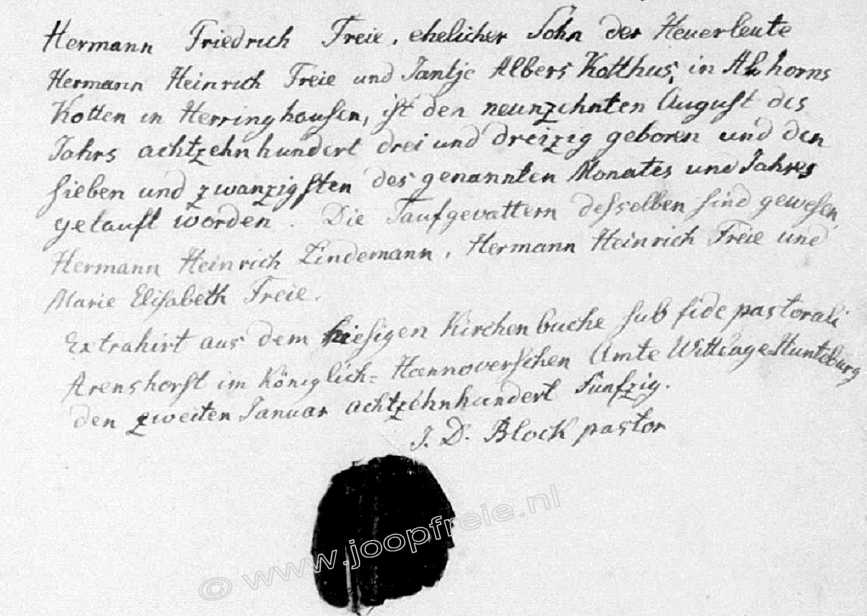 Hermann Friedrich Freie, ehelicher Sohn der Heuerleute
Hermann Heinrich Freie und Tantje Albers Kotthus, in Ahorns
Kotten in Herringhausen, ist den neunzehnten August des
Jahrs achtzehnhundert drei und dreizig geboren und den
sieben und zwanzigsten des genannten Monates und Jahres
getauft worden. Die Taufgevattern desselben sind gewesen,
Hermann Heinrich Lindemann, Hermann Heinrich Freie und
Marie Elisabeth Freie.
Extrahirt aus dem hiesigen Kirchenbuche sub fide pastorali
Arenshorst im Königlich-Hannoverschen Amte Wittlage Hunteburg
den zweiten Januar achtzehnhundert Funfzig.
J. D. Block pastor
© www.joopfreie.nl